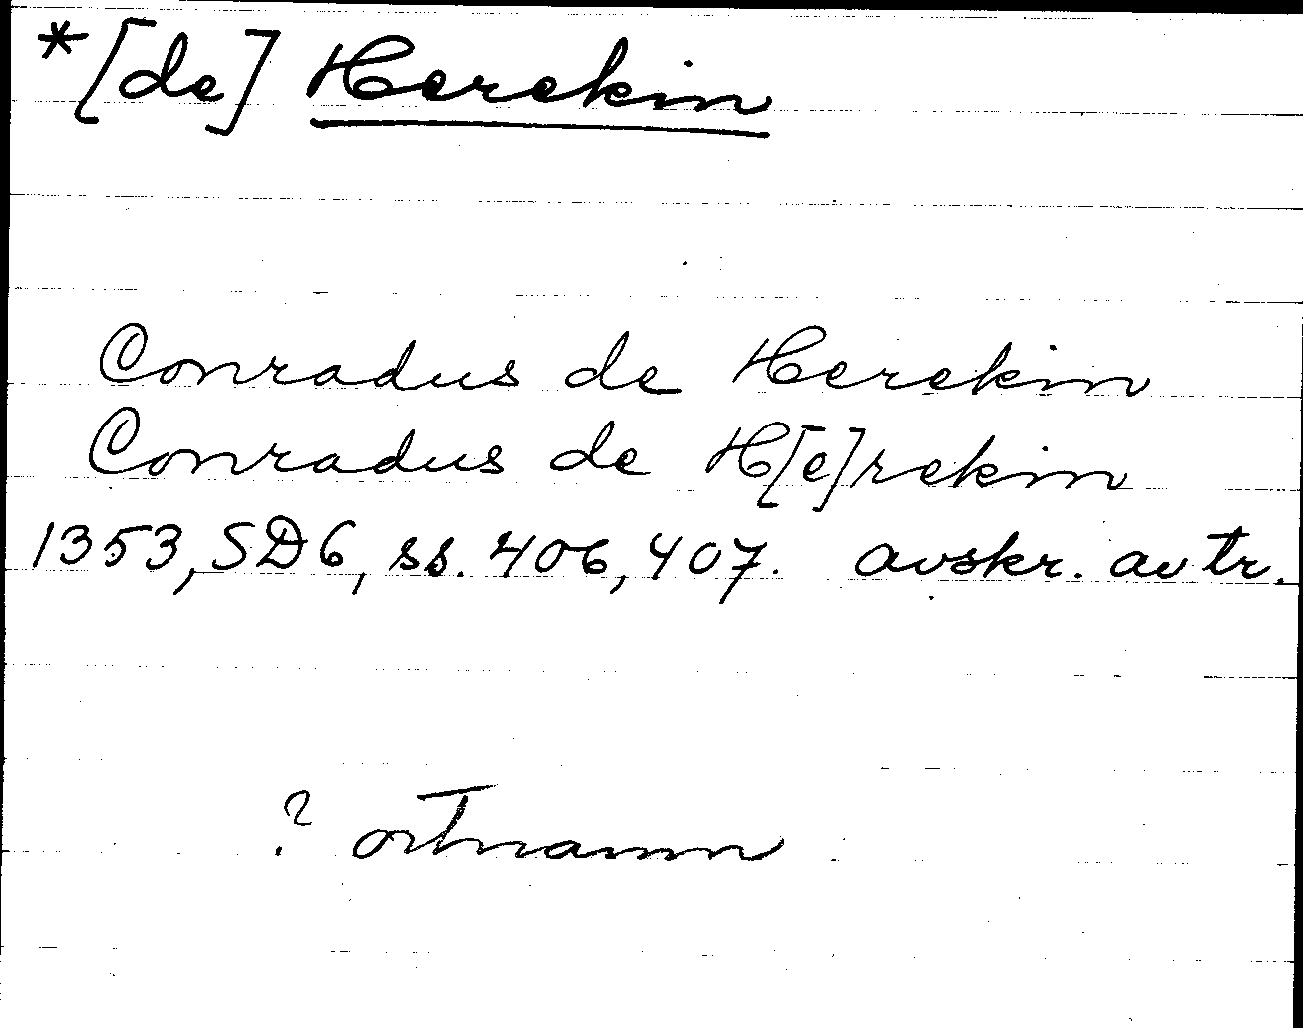 *[de] Herekin
Conradus de Herekin
Conradus de H[e]rekin
1353, SD6, ss. 406, 407. avskr. av tr.
? ortnamn